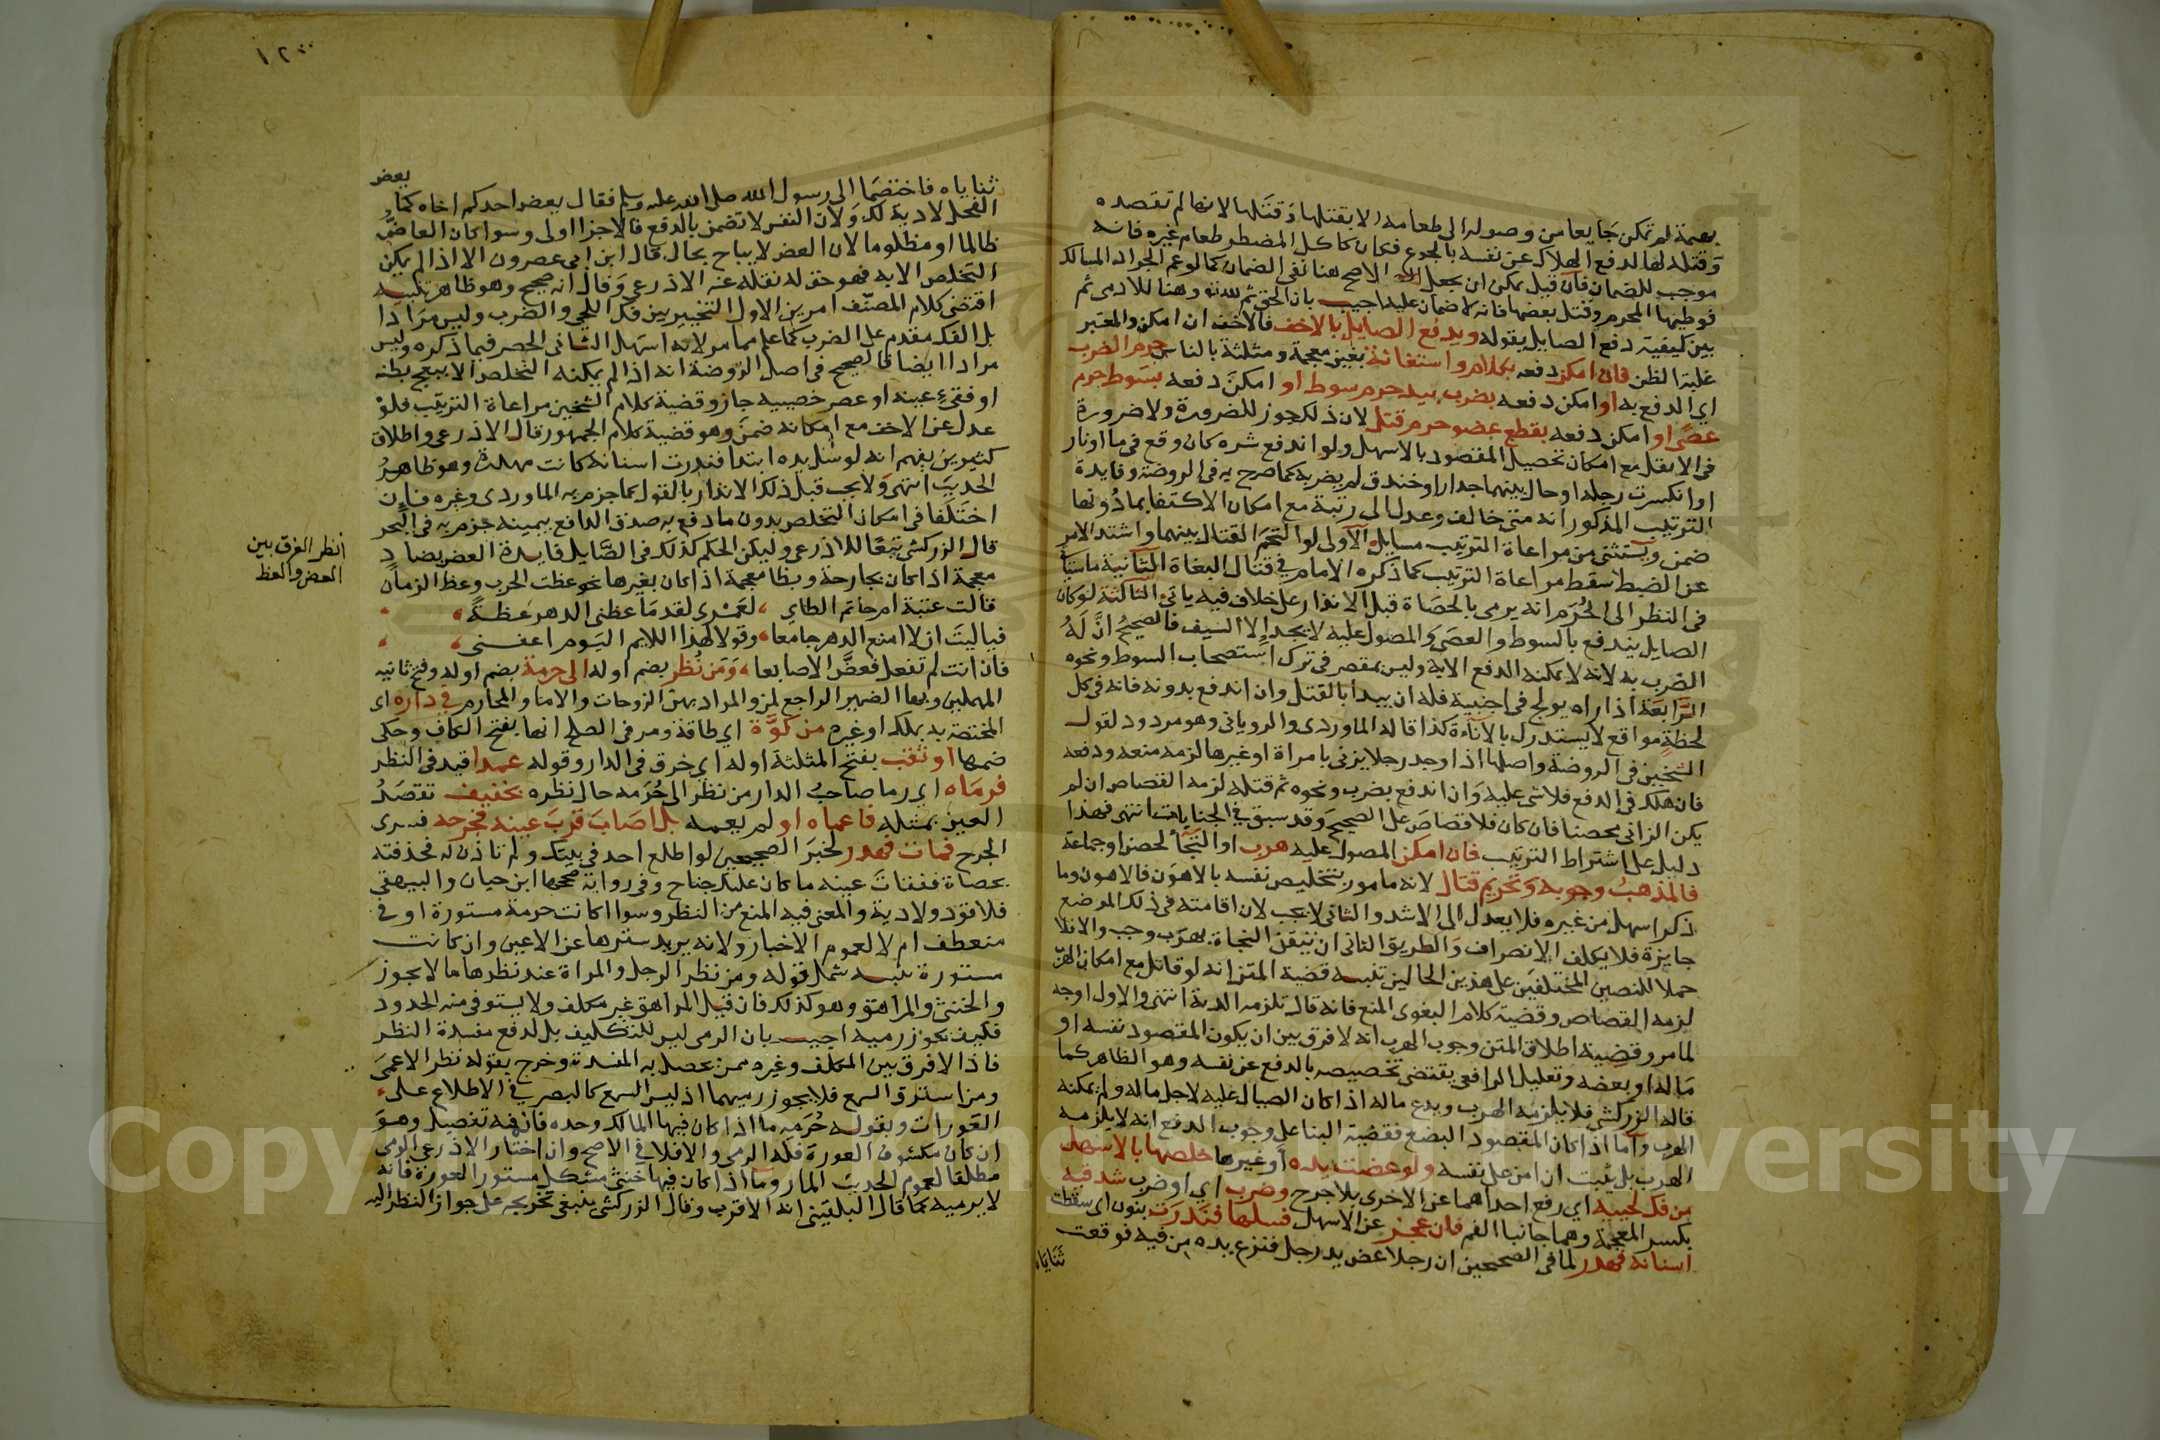 بهيمة لم تكن جايعا من وصوله الى طعامه الا بقتلها وقتلها لانها لم تقصده
وقتله لها لدفع الهلاك عن نفسه بالجوع فكان كاكل المضطر طعام غيره فانه
موجب للضمان فان قيل يمكن ان يجعل الاصح هنا نفى الضمان كما لو عم الجراد المسالك
فوطيها المحرم وقتل بعضها فانه لا ضمان عليه اجيب بان الحق ثم لله وهنا للادمى ثم
بين كيفية دفع الصايل بقوله ويدفع الصايل بالاخف فالاخف ان امكن والمعتبر
غلبة الظن فان امكن دفعه بكلام واستغاثة بغين معجمة ومثلثة بالناس حرم الضرب
اي الدفع به او امكن دفعه بضرب بيد حرم سوط او امكن دفعه بسوط حرم
عصى او امكن دفعه بقطع عضو حرم قتل لان ذلك جوز للضرورة ولا ضرورة
فى الاثقل مع امكان تحصيل المقصود بالاسهل ولو اندفع شره كان وقع فى ما او نار
او انكسرت رجله او حال بينهما جدار او خندق لم يضربه كما صرح به فى الروضة وفايدة
الترتيب المذكور انه متى خالف وعدل الى رتبة مع امكان الاكتفا بما دونها
ضمن ويستثنى من مراعاة الترتيب مسايل الاولى لو التحم القتال بينهما واشتد الامر
عن الضبط سقط مراعاة الترتيب كما ذكره الامام فى قتال البغاة الثانية ماسيأ
فى النظر الى الحرم انه يرمى بالحصاة قبل الانذار على خلاف فيه ياتى الثالثة لو كان
الصايل يندفع بالسوط والعصى والمصول عليه لا يجد الا السيف فالصحيح ان له
الضرب به لانه لا يمكنه الدفع الا به وليس بمقصر فى ترك استصحاب السوط ونحوه
الرابعة اذا راه يولج فى اجنبية فله ان يبدا بالقتل وان اندفع بدونه فانه فى كل
لحظة مواقع لا يستدرك بالاناءة كذا قاله الماوردى والرويانى وهو مردود لقول
الشيخين فى الروضة واصلها اذا وجد رجلا يزنى بامراة او غيرها لزمه منعه ودفعه
فان هلك فى الدفع فلا شى عليه وان اندفع بضرب ونحوه ثم قتله لزمه القصاص ان لم
يكن الزانى محصنا فان كان فلا قصاص على الصحيح وقد سبق فى الجنايات انتهى فهذا
دليل على اشتراط الترتيب فان امكن المصول عليه هرب او التجأ لحصن او جماعة
فالمذهب وجوبه وتحريم قتال لانه مامور بتخليص نفسه بالاهون فالاهون وما
ذكر اسهل من غيره فلا يعدل الى الاشد والثانى لا يجب لان اقامته فى ذلك الموضع
جايزة فلا يكلف الانصراف والطريق الثانى ان تيقن النجاة بهرب وجب والا فلا
حملا للنصين المختلفين على هذين الحالين تنبيه قضية المتن انه لو قاتل مع امكان الهرب
لزمه القصاص وقضية كلام البغوى المنع فانه قال تلزمه الدية انتهى والاول اوجه
لما مر وقضية اطلاق المتن وجوب الهرب انه لا فرق بين ان يكون المقصود نفسه او
ماله او بعضه وتعليل الرافعى يقتضى تخصيصه بالدفع عن نفسه وهو الظاهر كما
قاله الزركشى فلا يلزمه الهرب ويدع ماله اذا كان الصيال عليه لاجل ماله ولم يمكنه
الهرب واما اذا كان المقصود البضع فقضية البنا على وجوب الدفع انه لا يلزمه
الهرب بل يثبت ان امن على نفسه ولو عضت يده او غيرها خلصها بالاسهل
من فك لحييه اي رفع احداهما عن الاخرى بلا جرح وضرب اي او ضرب شدقيه
بكسر المعجمة وهما جانبا الفم فان عجز عن الاسهل فسلها فندرت بنون اى سقطت
اسنانه فهدر لما فى الصحيحين ان رجلا عض يد رجل فنزع يده من فيه فوقعت
ثناياه
١٢٠
ثناياه فاختصما الى رسول الله صلى الله عليه وسلم فقال يعض احدكم اخاه كما يعض
الفحل لا دية لك ولان النفس لا تضمن بالدفع فالاجزا اولى وسوا كان العاض
ظالما او مظلوما لان العض لا يباح بحال قال ابن ابى عصرون الا اذا لم يكن
التخلص الا به فهو حق له نقله عنه الاذرعى وقال انه صحيح وهو ظاهر تنبيه
اقتضى كلام المصنف امرين الاول التخيير بين فك اللحى والضرب وليس مرادا
بل الفك مقدم على الضرب كما علم مما مر لانه اسهل الثانى الحصر فيما ذكره وليس
مرادا ايضا فالصحيح فى اصل الروضة انه اذا لم يمكنه التخلص الا ببعج بطنه
او فقء عينه او عصر خصييه جاز وقضية كلام الشيخين مراعاة الترتيب فلو
عدل عن الاخف مع امكانه ضمن وهو قضية كلام الجمهور قال الاذرعى واطلاق
كثيرين يفهم انه لو سل يده ابتدا فندرت اسنانه كانت مهدرة وهو ظاهر
الحديث انتهى ولا يجب قبل ذلك الانذار بالقول كما جزم به الماوردى وغيره فان
اختلفا فى امكان التخلص بدون ما دفع به صدق الدافع بيمينه جزم به فى البحر
قال الزركشى تبعا للاذرعى وليكن الحكم كذلك فى الصايل فايدة العض بضاد
معجمة اذا كان بجارحة وبظا معجمة اذا كان بغيرها نحو عظت الحرب وعظ الزمان
قالت عتبة ام حاتم الطاى لعمرى لقدما عظنى الدهر عظة
فياليت ان لا امنع الدهر جامعا وقولا لهذا اللايم اليوم اعفنى
فان انت لم تفعل فعض الاصابعا ومن نظر بضم اوله الى حرمة بضم اوله وفتح ثانيه
المهملين وبها الضمير الراجع لمن والمراد بهن الزوجات والاما والمحارم في داره اى
المختصة به بملك او غيره من كوة اي طاقة ومر فى الصلح انها بفتح الكاف وحكى
ضمها او ثقب بفتح المثلثة اوله اي خرق فى الدار وقوله عمدا قيد فى النظر
فرماه اي رما صاحب الدار من نظر الى حرمه حال نظره بخفيف تقصد
العين بمثله فاعماه او لم يعمه بل اصاب قرب عينه فجرحه فسرى
الجرح فمات فهدر لخبر الصحيحين لو اطلع احد فى بيتك ولم تاذن له فخذفته
بحصاة ففقات عينه ما كان عليك جناح وفى رواية صححها ابن حبان والبيهقي
فلا قود ولا دية والمعنى فيه المنع من النظر وسوا اكانت حرمة مستورة او فى
منعطف ام لا لعموم الاخبار ولانه يريد سترها عن الاعين وان كانت
مستورة تنبيه شمل قوله ومن نظر الرجل والمراة عند نظرها ما لا يجوز
والخنثى والمراهق وهو كذلك فان قيل المراهق غير مكلف ولا يستوفى منه الحدود
فكيف يجوز رميه اجيب بان الرمى ليس للتكليف بل لدفع مفسدة النظر
فاذا لا فرق بين المكلف وغيره ممن يحصل به المفسدة وخرج بقوله نظر الاعمى
ومن استرق السمع فلا يجوز رميهما اذ ليس السمع كالبصر فى الاطلاع على
العورات وبقوله حرمه ما اذا كان فيها المالك وحده فان فيه تفصيل وهو
ان كان مكشوف العورة فله الرمى والا فلا فى الاصح وان اختار الاذرعى الرمى
مطلقا لعموم الحديث المار وما اذا كان فيها خنثى مشكل مستور العورة فانه
لا يرميه كما قال البلقينى انه الاقرب وقال الزركشى ينبغى تخريجه على جواز النظر اليه
انظر الفرق بين
العض والعظ